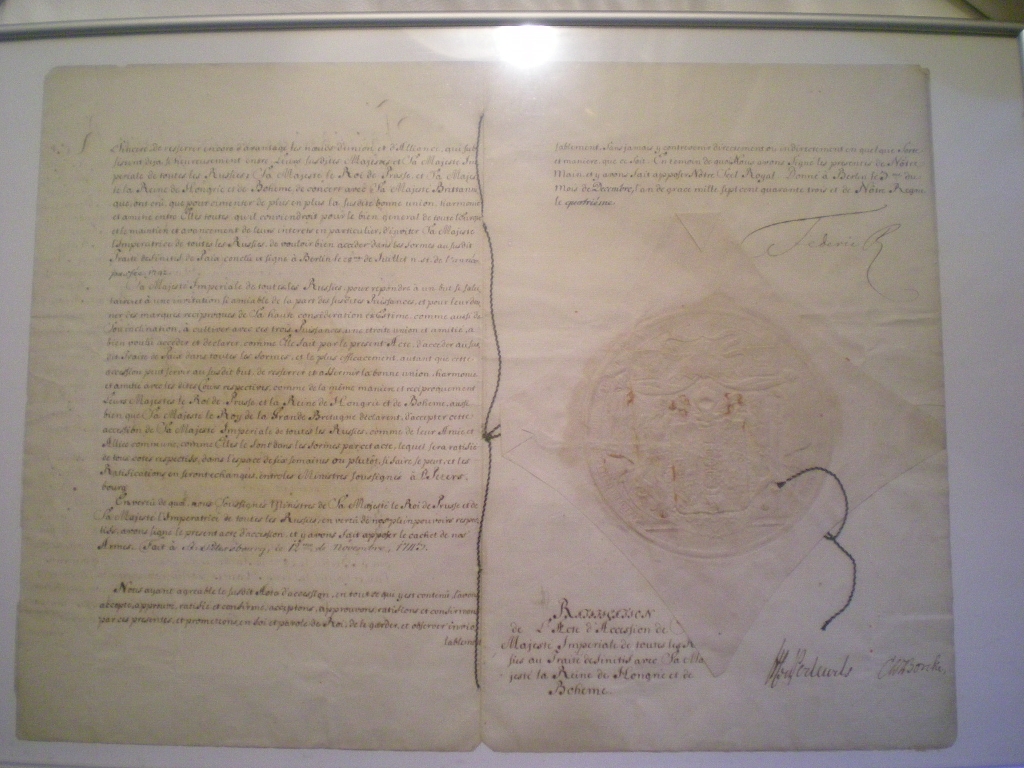 de resserrer encore d'avantage les noeuds d'union et d'Alliance, qui sub
sistent deja si heureusement entre Leurs susdites Majestés et Sa Majesté Im
periale de toutes les Russies; Sa Majesté le Roi de Prusse et Sa Majes
té la Reine de Hongrie et de Bohême de concert avec Sa Majesté Britanni
que, ont crû, que pour cimenter de plus en plus la susdite bonne union, harmonie
et amitié entre Elles toutes qu'il conviendroit pour le bien general de toute l'Europe
et le maintien et avancement de leurs interets en particulier, d'inviter Sa Majesté
l'Imperatrice de toutes les Russies, de vouloir bien acceder dans les formes au susdit
Traité definitif de Paix conclu et signé à Berlin le de Juillet n. st. de l'année
passée, 1742.
Sa Majesté Imperiale de toutes les Russies, pour repondre à un but si salu
taire et à une invitation si amiable de la part des susdites Puissances, et pour leur don
ner des marques reciproques de Sa haute consideration et estime, comme aussi de
Son inclination, à cultiver avec ces trois Puissances une etroite union et amitié, a
bien voulu acceder et declarer, comme Elle fait par le present Acte, d'acceder au sus
dit Traité de Paix dans toutes les formes, et le plus efficacement, autant que cette
accession peut servir au susdit but, de resserrer et affermir la bonne union, harmonie
et amitié avec les dites Cours respectives, comme de la même maniere et reciproquement
Leurs Majestés le Roi de Prusse, et la Reine de Hongrie et de Bohême, aussi
bien que Sa Majesté le Roy de la Grande Bretagne declarent, d'accepter cette
accession de Sa Majesté Imperiale de toutes les Russies, comme de leur Amie et
Alliée commune, comme Elles le font dans les formes par cet acte, lequel sera ratifié
de tous cotés respectifs, dans l'espace de six semaines ou plutôt, si faire se peut, et les
Ratifications en seront echangées, entre les Ministres soussignés à St Peters-
bourg.
En vertu de quoi nous Soussignés Ministres de Sa Majesté le Roi de Prusse et de
Sa Majesté l'Imperatrice de toutes les Russies, en vertu de nos pleinpouvoirs respec
tifs, avons signé le present acte d'accession, et y avons fait apposer le cachet de nos
Armes. Fait à St. Petersbourg, le de Novembre, 1743.
Nous ayant agreable le susdit Acte d'accession, en tout ce que y est contenu, l'avons
accepté, approuvé, ratifié et confirmé, acceptons, approuvons, ratifions et confirmons
par ces presentes, et promettons, en foi et parole de Roi, de le garder, et observer invio
lablement
lablement, sans jamais y contrevenir directement ou indirectement en quelque sorte
et maniere que ce soit. En temoin de quoi Nous avons signé les presentes de Nôtre
Main, et y avons fait apposer Nôtre Seel Royal. Donné à Berlin le 3me du
Mois de Decembre, l'an de grace mille sept cent quarante trois et de Nôtre Regne
le quatrième.
Federic R
Ratification
de L'Acte d'Accession de Sa
Majesté Imperiale de toutes les Rus
sies au Traité definitif avec Sa Ma
jesté la Reine de Hongrie et de
Bohême.
HPodewils CWBorcke.